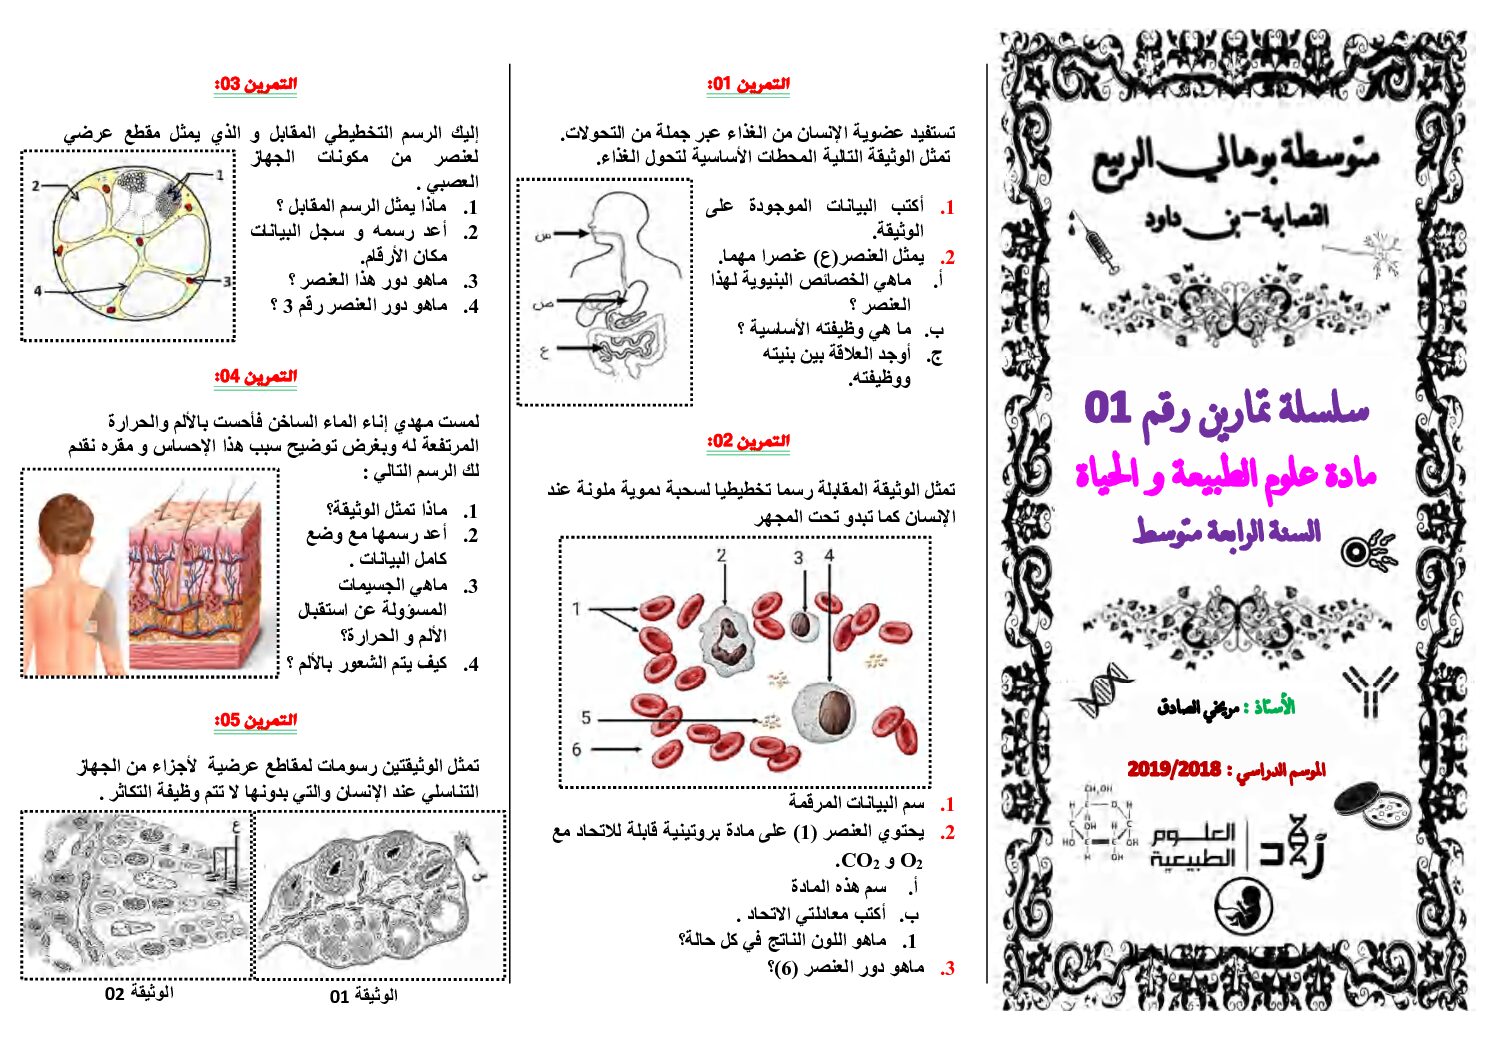 متوسطة بوهالي الربيع
القصابية-بن داود
سلسلة تمارين رقم 01
مادة علوم الطبيعة و الحياة
السنة الرابعة متوسط
الأستاذ : مريخي الصادق
الموسم الدراسي : 2019/2018
CH2OH
H
O
H
H
OH
H
HO
OH
H
OH
زاد
العلوم
الطبيعية
التمرين 01:
تستفيد عضوية الإنسان من الغذاء عبر جملة من التحولات.
تمثل الوثيقة التالية المحطات الأساسية لتحول الغذاء.
1. أكتب البيانات الموجودة على
الوثيقة.
2. يمثل العنصر(ع) عنصرا مهما.
أ. ماهي الخصائص البنيوية لهذا
العنصر ؟
ب. ما هي وظيفته الأساسية ؟
ج. أوجد العلاقة بين بنيته
ووظيفته.
س
ص
ع
التمرين 02:
تمثل الوثيقة المقابلة رسما تخطيطيا لسحبة دموية ملونة عند
الإنسان كما تبدو تحت المجهر
2
3
4
1
5
6
1. سم البيانات المرقمة
2. يحتوي العنصر (1) على مادة بروتينية قابلة للاتحاد مع
O2 و CO2.
أ. سم هذه المادة
ب. أكتب معادلتي الاتحاد .
1. ماهو اللون الناتج في كل حالة؟
3. ماهو دور العنصر (6)؟
التمرين 03:
إليك الرسم التخطيطي المقابل و الذي يمثل مقطع عرضي
لعنصر من مكونات الجهاز
العصبي .
1. ماذا يمثل الرسم المقابل ؟
2. أعد رسمه و سجل البيانات
مكان الأرقام.
3. ماهو دور هذا العنصر ؟
4. ماهو دور العنصر رقم 3 ؟
1
2
3
4
التمرين 04:
لمست مهدي إناء الماء الساخن فأحست بالألم والحرارة
المرتفعة له وبغرض توضيح سبب هذا الإحساس و مقره نقدم
لك الرسم التالي :
1. ماذا تمثل الوثيقة؟
2. أعد رسمها مع وضع
كامل البيانات .
3. ماهي الجسيمات
المسؤولة عن استقبال
الألم و الحرارة؟
4. كيف يتم الشعور بالألم ؟
التمرين 05:
تمثل الوثيقتين رسومات لمقاطع عرضية لأجزاء من الجهاز
التناسلي عند الإنسان والتي بدونها لا تتم وظيفة التكاثر .
س
ع
الوثيقة 01
الوثيقة 02